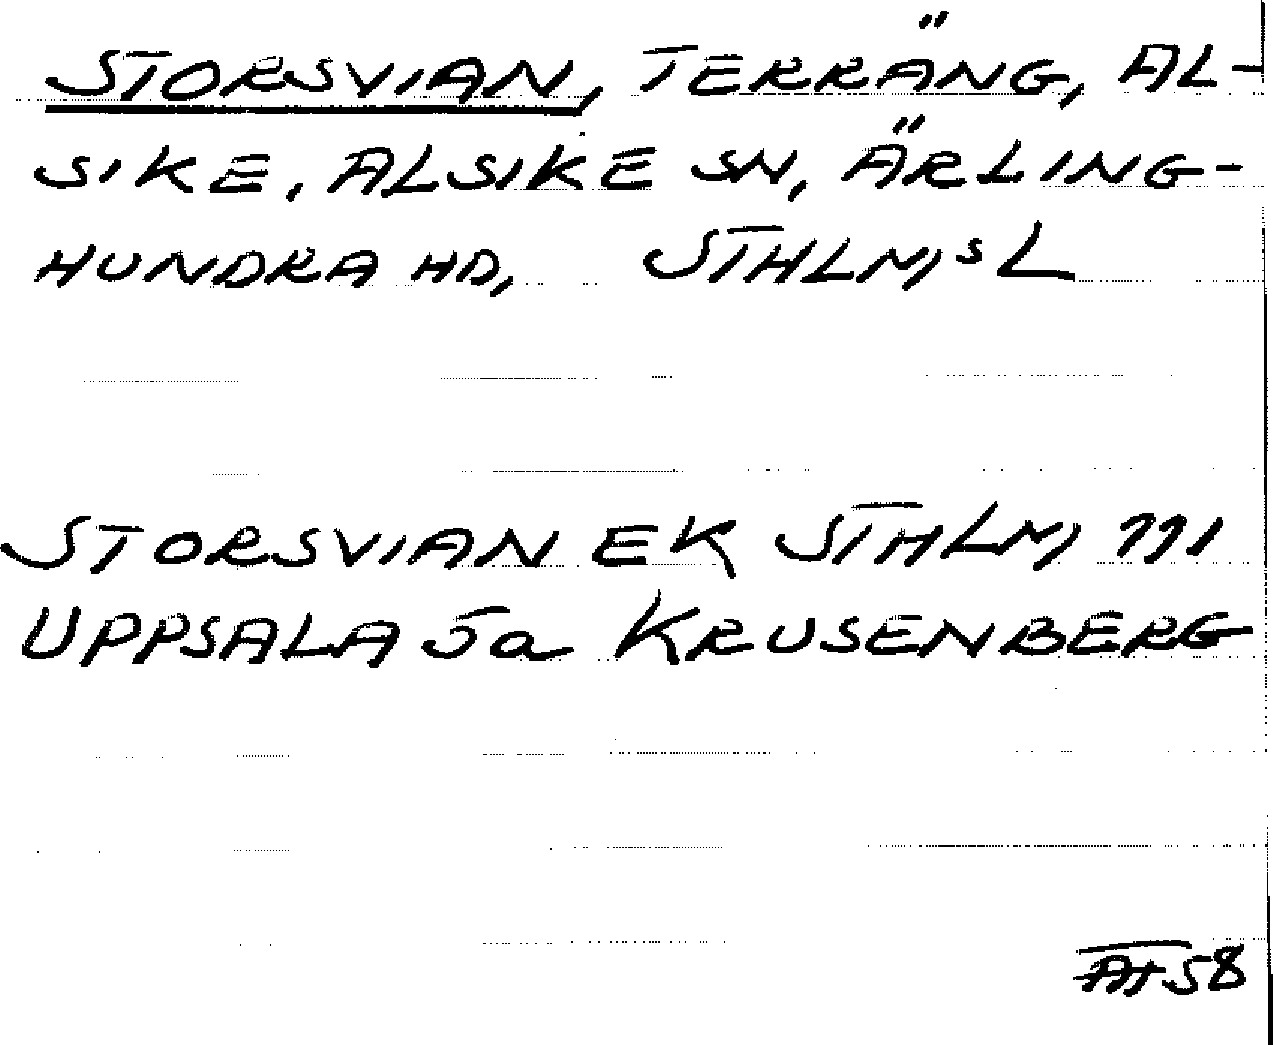 STORSVIAN, TERRÄNG, AL-
SIKE, ALSIKE SN, ÄRLING-
HUNDRA HD, STHLMS L
STORSVIAN EK STHLM 111
UPPSALA 5a KRUSENBERG
58